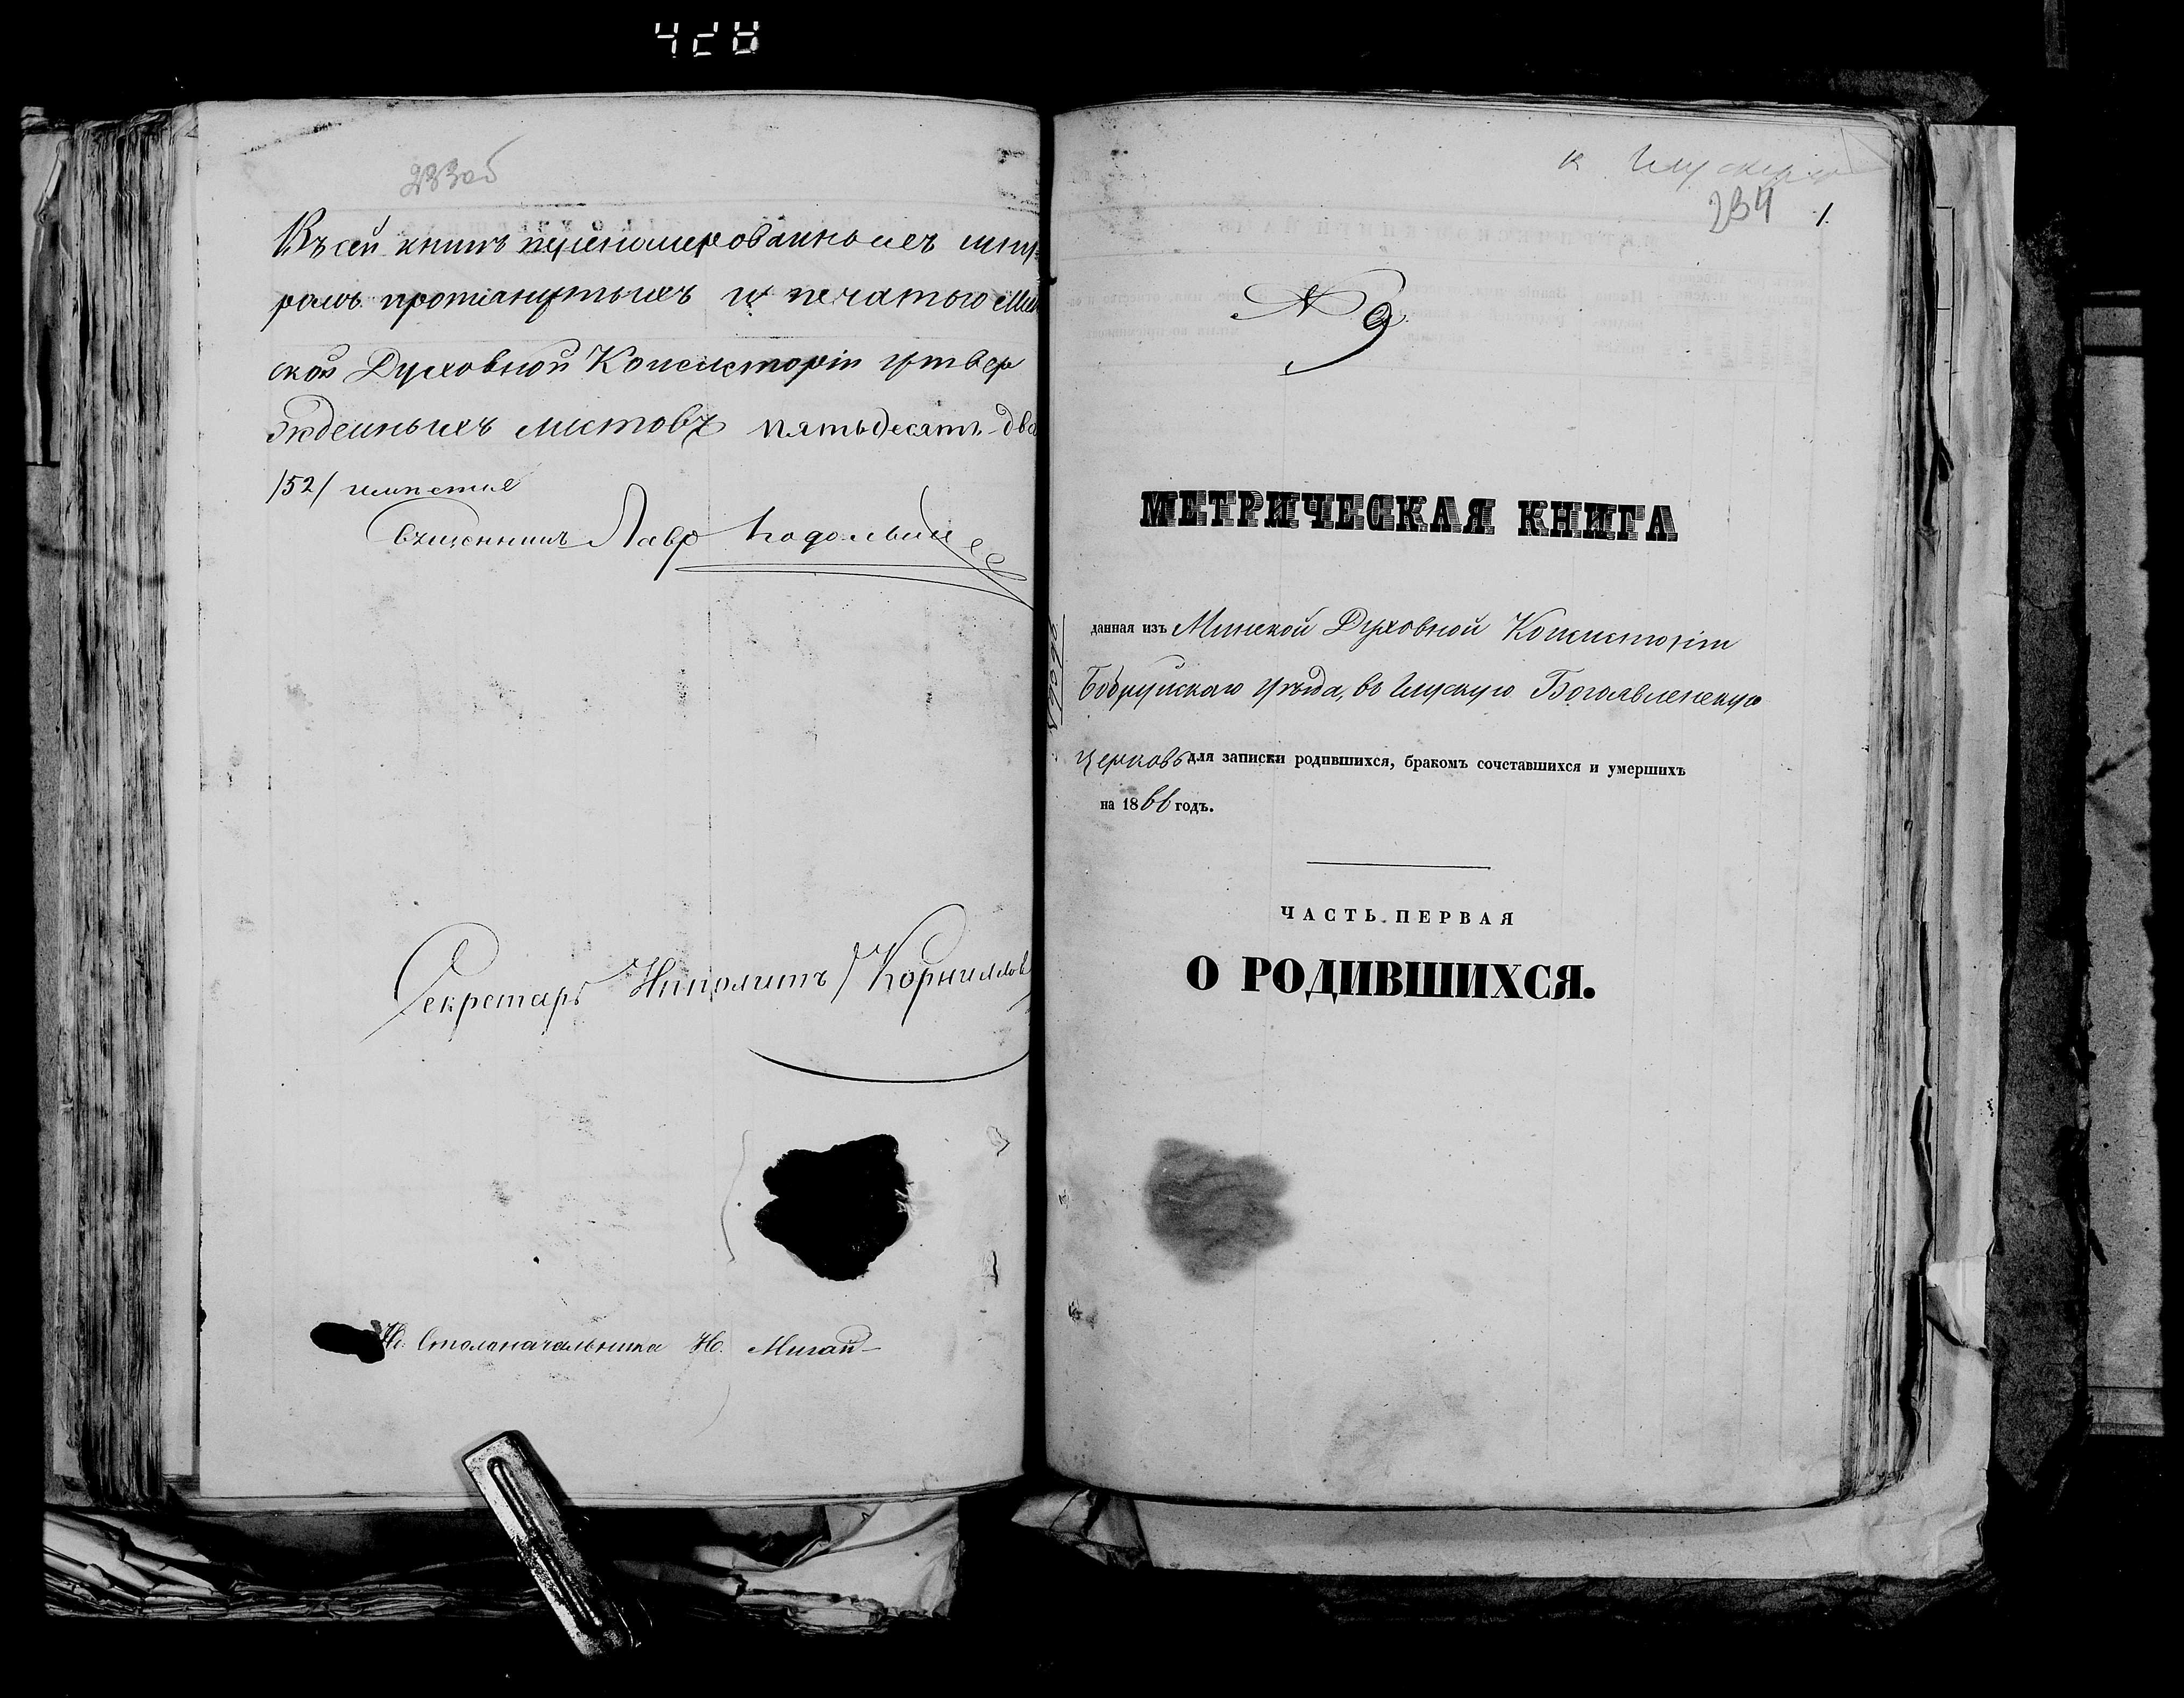 233об
Въ сей книгѣ перенумерованныхъ шну-
ромъ протянутыхъ и печатью Мин
ской Духовной Консисторіи утвер
жденныхъ листовъ пятьдесятъ два
/52/
Священникъ Лавр
Секретарь Ипполитъ Корниллов
Столоначальника Н.
к
234 1.
№ 9
МЕТРИЧЕСКАЯ КНИГА
данная изъ Минской Духовной Консисторіи
Бобруйскаго уѣзда, въ Глускую Богоявленскую
церковь для записки родившихся, бракомъ сочетавшихся и умершихъ
на 1866 годъ.
ЧАСТЬ ПЕРВАЯ
О РОДИВШИХСЯ.